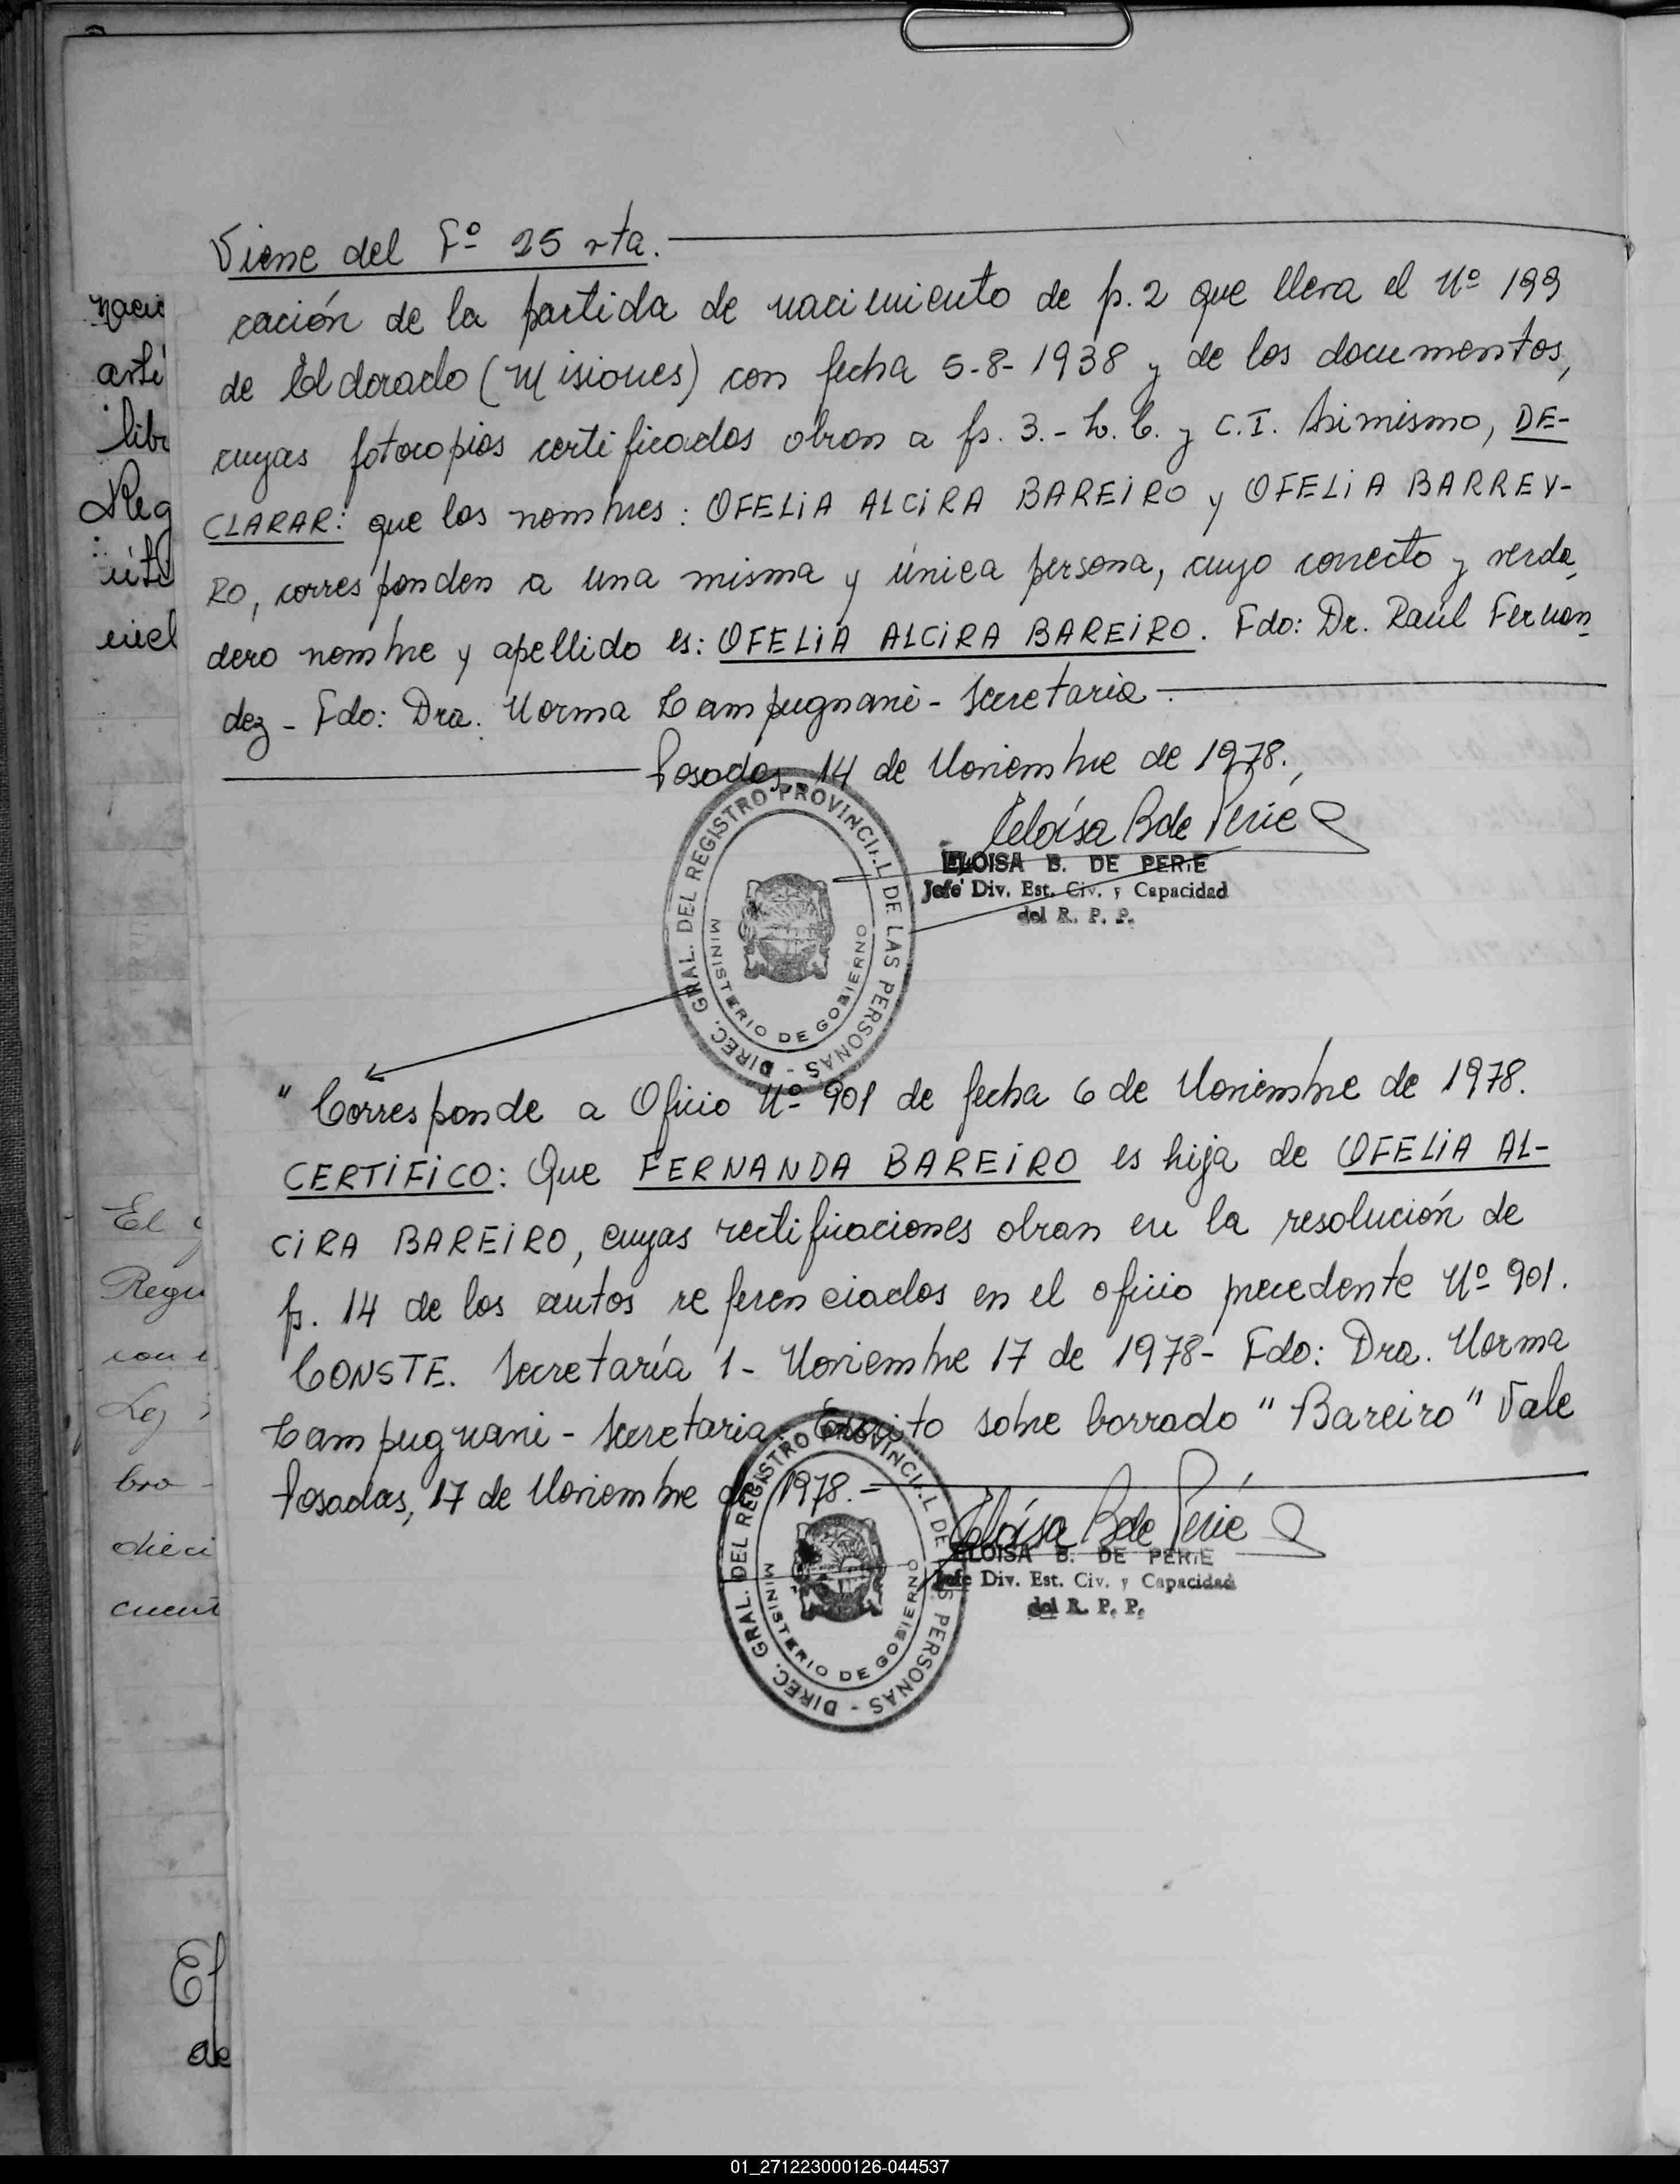 Viene del Fº 25 vta.
cación de la partida de nacimiento de fs. 2 que lleva el Nº 199
de Eldorado (Misiones) con fecha 5-8-1938 y de los documentos,
cuyas fotocopias certificadas obran a fs. 3.- L. C. y C.I. Asimismo, DE-
CLARAR: que los nombres: OFELIA ALCIRA BAREIRO y OFELIA BARREY-
RO, corresponden a una misma y única persona, cuyo correcto y verda
dero nombre y apellido es: OFELIA ALCIRA BAREIRO. Fdo: Dr. Raúl Fernan
dez - Fdo: Dra. Norma Campugnani - Secretaria.
Posadas, 14 de Noviembre de 1978.
Eloísa B de Perié
ELOISA B. DE PERIE
Jefe Div. Est. Civ. y Capacidad
del R. P. P.
DIREC. GRAL. DEL REGISTRO PROVINCIAL DE LAS PERSONAS -
MINISTERIO DE GOBIERNO
" Corresponde a Oficio Nº 901 de fecha 6 de Noviembre de 1978.
CERTIFICO: Que FERNANDA BAREIRO es hija de OFELIA AL-
CIRA BAREIRO, cuyas rectificaciones obran en la resolución de
fs. 14 de los autos referenciados en el oficio precedente Nº 901.
CONSTE. Secretaría 1 - Noviembre 17 de 1978 - Fdo: Dra. Norma
Campugnani - Secretaria. Escrito sobre borrado "Bareiro" Vale
Posadas, 17 de Noviembre de 1978.-
Eloísa B de Perié
ELOISA B. DE PERIE
Jefe Div. Est. Civ. y Capacidad
del R. P. P.
DIREC. GRAL. DEL REGISTRO PROVINCIAL DE LAS PERSONAS -
MINISTERIO DE GOBIERNO
nacic
arti
libr
Reg
El
Regi
Ley
bro -
dieci
cuent
El
de
01_271223000126-044537